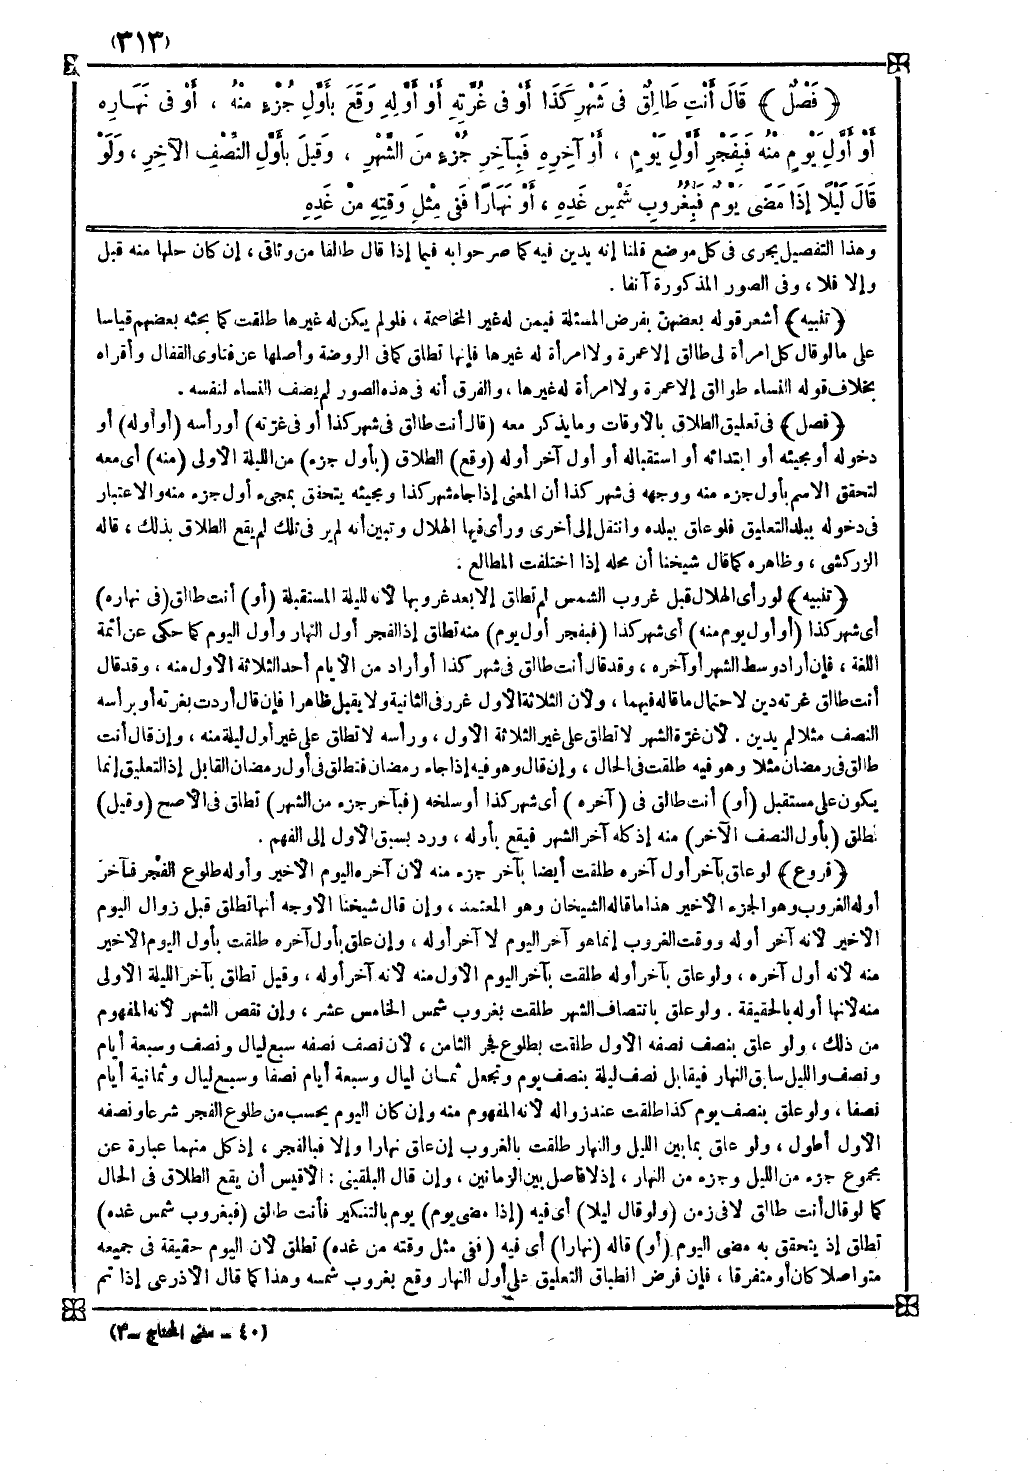 (٣١٣)
﴿ فَصْلٌ ﴾ قَالَ أَنْتِ طَالِقٌ فى شَهْرِ كَذَا أَوْ فى غُرَّتِهِ أَوْ أَوَّلِهِ وَقَعَ بِأَوَّلِ جُزْءٍ مِنْهُ ، أَوْ فى نَهَارِهِ
أَوْ أَوَّلِ يَوْمٍ مِنْهُ فَبِفَجْرِ أَوَّلِ يَوْمٍ ، أَوْ آخِرِهِ فَبِآخِرِ جُزْءٍ مِنَ الشَّهْرِ ، وَقيلَ بِأَوَّلِ النِّصْفِ الآخِرِ ، وَلَوْ
قَالَ لَيْلًا إِذَا مَضَى يَوْمٌ فَبِغُرُوبِ شَمْسِ غَدِهِ ، أَوْ نَهَارًا فَفى مِثْلِ وَقتِهِ مِنْ غَدِهِ
وهذا التفصيل يجرى فى كل موضع قلنا إنه يدين فيه كما صرحوا به فيما إذا قال طالقا من وثاقى ، إن كان حلها منه قبل
وإلا فلا ، وفى الصور المذكورة آنفا .
﴿ تنبيه ﴾ أشعر قوله بعضهنّ بفرض المسئلة فيمن له غير المخاصمة ، فلو لم يكن له غيرها طلقت كما بحثه بعضهم قياسا
على مالو قال كل امرأة لى طالق إلا عمرة ولا امرأة له غيرها فإنها تطلق كما فى الروضة وأصلها عن فتاوى القفال وأقراه
بخلاف قوله النساء طوالق إلا عمرة ولا امرأة له غيرها ، والفرق أنه فى هذه الصور لم يضف النساء لنفسه .
﴿ فصل ﴾ فى تعليق الطلاق بالأوقات وما يذكر معه (قال أنت طالق فى شهر كذا أو فى غرّته) أو رأسه (أو أوله) أو
دخوله أو مجيئه أو ابتدائه أو استقباله أو أول آخر أوله (وقع) الطلاق (بأول جزء) من الليلة الأولى (منه) أى معه
لتحقق الاسم بأول جزء منه ووجهه فى شهر كذا أن المعنى إذا جاء شهر كذا ومجيئه يتحقق بمجىء أول جزء منه والاعتبار
فى دخوله ببلد التعليق فلو علق ببلده وانتقل إلى أخرى ورأى فيها الهلال وتبين أنه لم ير فى تلك لم يقع الطلاق بذلك ، قاله
الزركشى ، وظاهره كما قال شيخنا أن محله إذا اختلفت المطالع .
﴿ تنبيه ﴾ لو رأى الهلال قبل غروب الشمس لم تطلق إلا بعد غروبها لأنه لليلة المستقبلة (أو) أنت طالق (فى نهاره)
أى شهر كذا (أو أول يوم منه) أى شهر كذا (فبفجر أول يوم) منه تطلق إذ الفجر أول النهار وأول اليوم كما حكى عن أئمة
اللغة ، فإن أراد وسط الشهر أو آخره ، وقد قال أنت طالق فى شهر كذا أو أراد من الأيام أحد الثلاثة الأول منه ، وقد قال
أنت طالق غرته دين لاحتمال ما قاله فيهما ، ولأن الثلاثة الأول غرر فى الثانية ولا يقبل ظاهرا فإن قال أردت بغرته أو برأسه
النصف مثلا لم يدين . لأن غرّة الشهر لا تطلق على غير الثلاثة الأول ، ورأسه لا تطلق على غير أول ليلة منه ، وإن قال أنت
طالق فى رمضان مثلا وهو فيه طلقت فى الحال ، وإن قال وهو فيه إذا جاء رمضان فتطلق فى أول رمضان القابل إذ التعليق إنما
يكون على مستقبل (أو) أنت طالق فى (آخره) أى شهر كذا أو سلخه (فبآخر جزء من الشهر) تطلق فى الأصح (وقيل)
تطلق (بأول النصف الآخر) منه إذ كله آخر الشهر فيقع بأوله ، ورد بسبق الأول إلى الفهم .
﴿ فروع ﴾ لو علق بآخر أول آخره طلقت أيضا بآخر جزء منه لأن آخره اليوم الأخير وأوله طلوع الفجر فآخر
أوله الغروب وهو الجزء الأخير هذا ما قاله الشيخان وهو المعتمد ، وإن قال شيخنا الأوجه أنها تطلق قبل زوال اليوم
الأخير لأنه آخر أوله ووقت الغروب إنما هو آخر اليوم لا آخر أوله ، وإن علق بأول آخره طلقت بأول اليوم الأخير
منه لأنه أول آخره ، ولو علق بآخر أوله طلقت بآخر اليوم الأول منه لأنه آخر أوله ، وقيل تطلق بآخر الليلة الأولى
منه لأنها أوله بالحقيقة . ولو علق بانتصاف الشهر طلقت بغروب شمس الخامس عشر ، وإن نقص الشهر لأنه المفهوم
من ذلك ، ولو علق بنصف نصفه الأول طلقت بطلوع فجر الثامن ، لأن نصف نصفه سبع ليال ونصف وسبعة أيام
ونصف والليل سابق النهار فيقابل نصف ليلة بنصف يوم وتجعل ثمان ليال وسبعة أيام نصفا وسبع ليال وثمانية أيام
نصفا ، ولو علق بنصف يوم كذا طلقت عند زواله لأنه المفهوم منه وإن كان اليوم يحسب من طلوع الفجر شرعا ونصفه
الأول أطول ، ولو علق بما بين الليل والنهار طلقت بالغروب إن علق نهارا وإلا فبالفجر ، إذ كل منهما عبارة عن
مجموع جزء من الليل وجزء من النهار ، إذ لا فاصل بين الزمانين ، وإن قال البلقينى : الأقيس أن يقع الطلاق فى الحال
كما لو قال أنت طالق لا فى زمن (ولو قال ليلا) أى فيه (إذا مضى يوم) يوم بالتنكير فأنت طالق (فبغروب شمس غده)
تطلق إذ يتحقق به مضى اليوم (أو) قاله (نهارا) أى فيه (ففى مثل وقته من غده) تطلق لأن اليوم حقيقة فى جميعه
متواصلا كان أو متفرقا ، فإن فرض انطباق التعليق على أول النهار وقع بغروب شمسه وهذا كما قال الأذرعى إذا تم
(٤٠ - مغنى المحتاج - ٣)